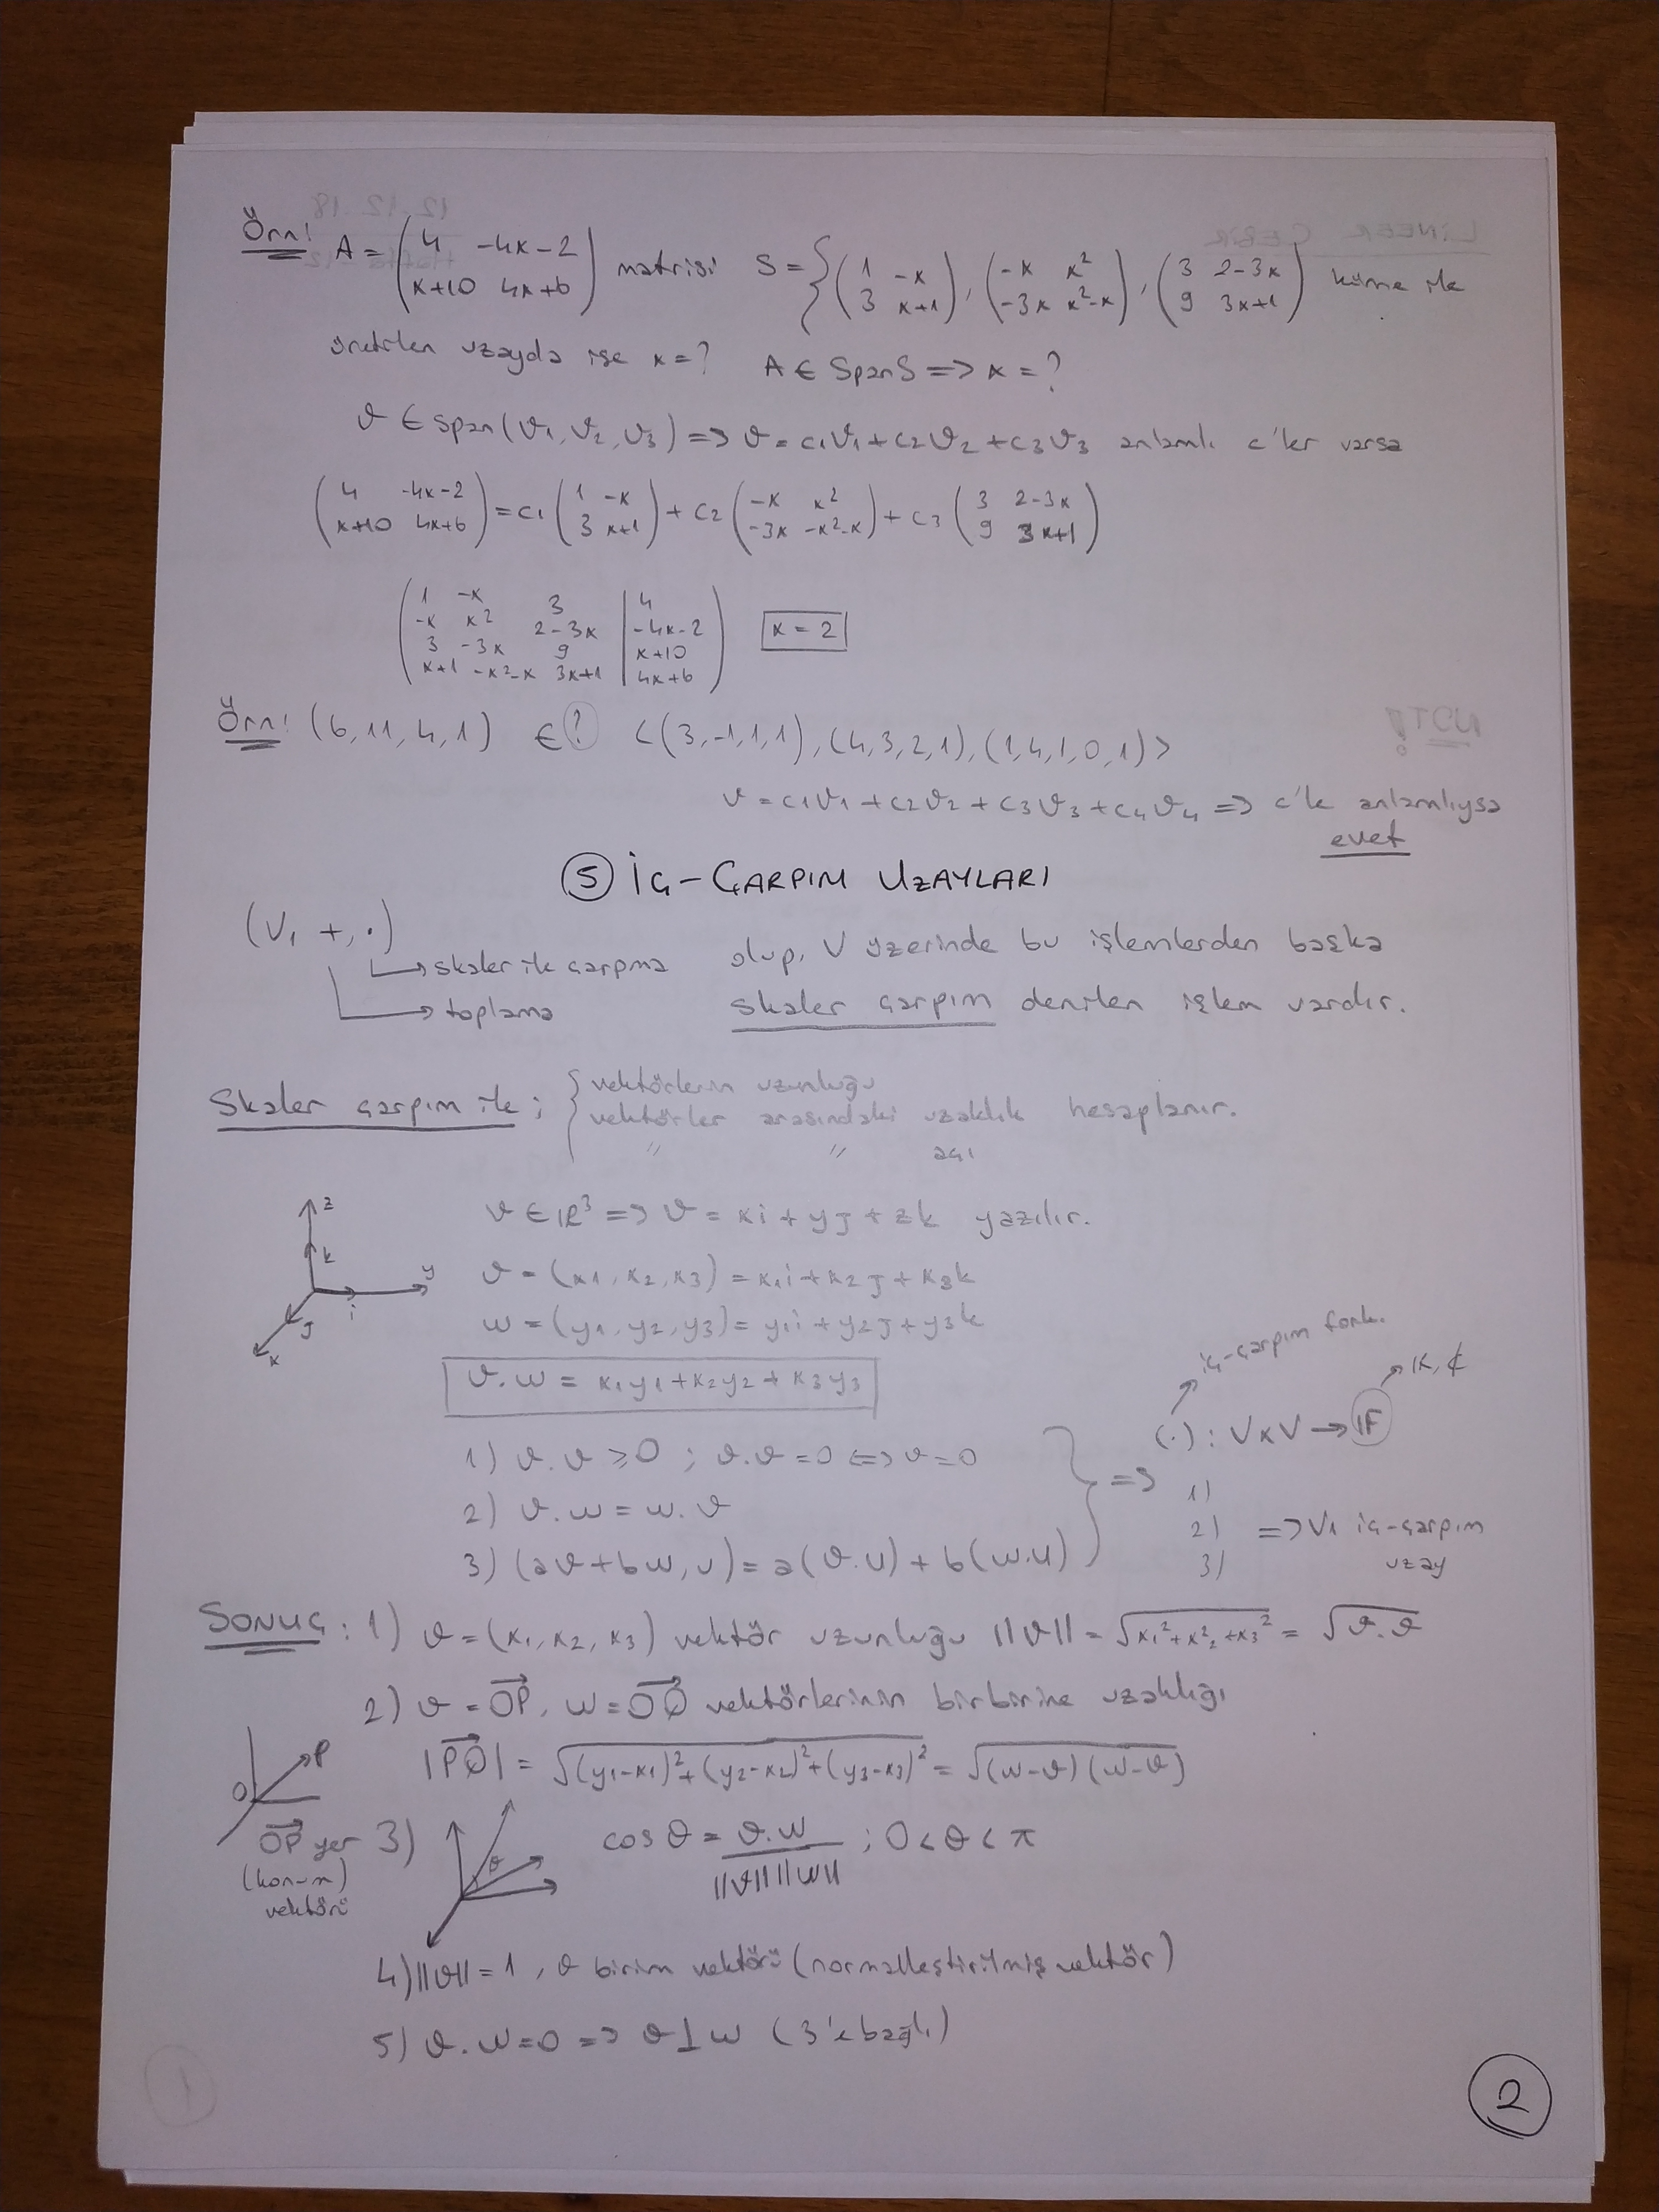 Örn! A = ( 4 -4x-2 / x+10 4x+6 ) matrisi S = { ( 1 -x / 3 x+1 ), ( -x x² / -3x x²-x ), ( 3 2-3x / 9 3x+1 ) küme ile
üretilen uzayda ise x=? A ∈ SpanS => x = ?
v ∈ Span(v1, v2, v3) => v = c1v1 + c2v2 + c3v3 anlamlı c'ler varsa
( 4 -4x-2 / x+10 4x+6 ) = c1 ( 1 -x / 3 x+1 ) + c2 ( -x x² / -3x -x²-x ) + c3 ( 3 2-3x / 9 3x+1 )
1 -x 3 | 4
-x x² 2-3x | -4x-2
3 -3x 9 | x+10
x+1 -x²-x 3x+1 | 4x+6
x = 2
Örn! (6, 11, 4, 1) ∈ ? < (3,-1,1,1), (4,3,2,1), (1,4,1,0,1) >
v = c1v1 + c2v2 + c3v3 + c4v4 => c'le anlamlıysa
evet
5 İÇ-ÇARPIM UZAYLARI
(V, +, ·)
skaler ile çarpma
toplama
olup, V üzerinde bu işlemlerden başka
skaler çarpım denilen işlem vardır.
Skaler çarpım ile ; { vektörlerin uzunluğu
vektörler arasındaki uzaklık hesaplanır.
" " açı
z
k
y
i
j
x
v ∈ IR³ => v = xi + yj + zk yazılır.
v = (x1, x2, x3) = x1i + x2j + x3k
w = (y1, y2, y3) = y1i + y2j + y3k
v.w = x1y1 + x2y2 + x3y3
iç-çarpım fonk.
IK, ₵
(·) : V x V → IF
1) v.v ≥ 0 ; v.v = 0 <=> v = 0
2) v.w = w.v
3) (av + bw, u) = a(v.u) + b(w.u)
=>
1)
2) => V, iç-çarpım
3) uzay
SONUÇ : 1) v = (x1, x2, x3) vektör uzunluğu ||v|| = √x1² + x2² + x3² = √v.v
2) v = OP, w = OQ vektörlerinin birbirine uzaklığı
|PQ| = √(y1-x1)² + (y2-x2)² + (y3-x3)² = √(w-v)(w-v)
P
O
OP yer
(konum)
vektörü
3) θ cos θ = v.w / ||v|| ||w|| ; 0 < θ < π
4) ||v|| = 1, v birim vektörü (normalleştirilmiş vektör)
5) v.w = 0 => v ⊥ w (3'e bağlı)
2